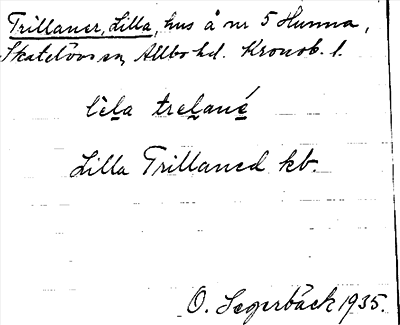 Trillaner, Lilla, hus å nr 5 Hunna,
Skatelövs sn, Allbo hd. Kronob. l.
lìla trelané
Lilla Trillaned kb.
O. Segerbäck 1935.